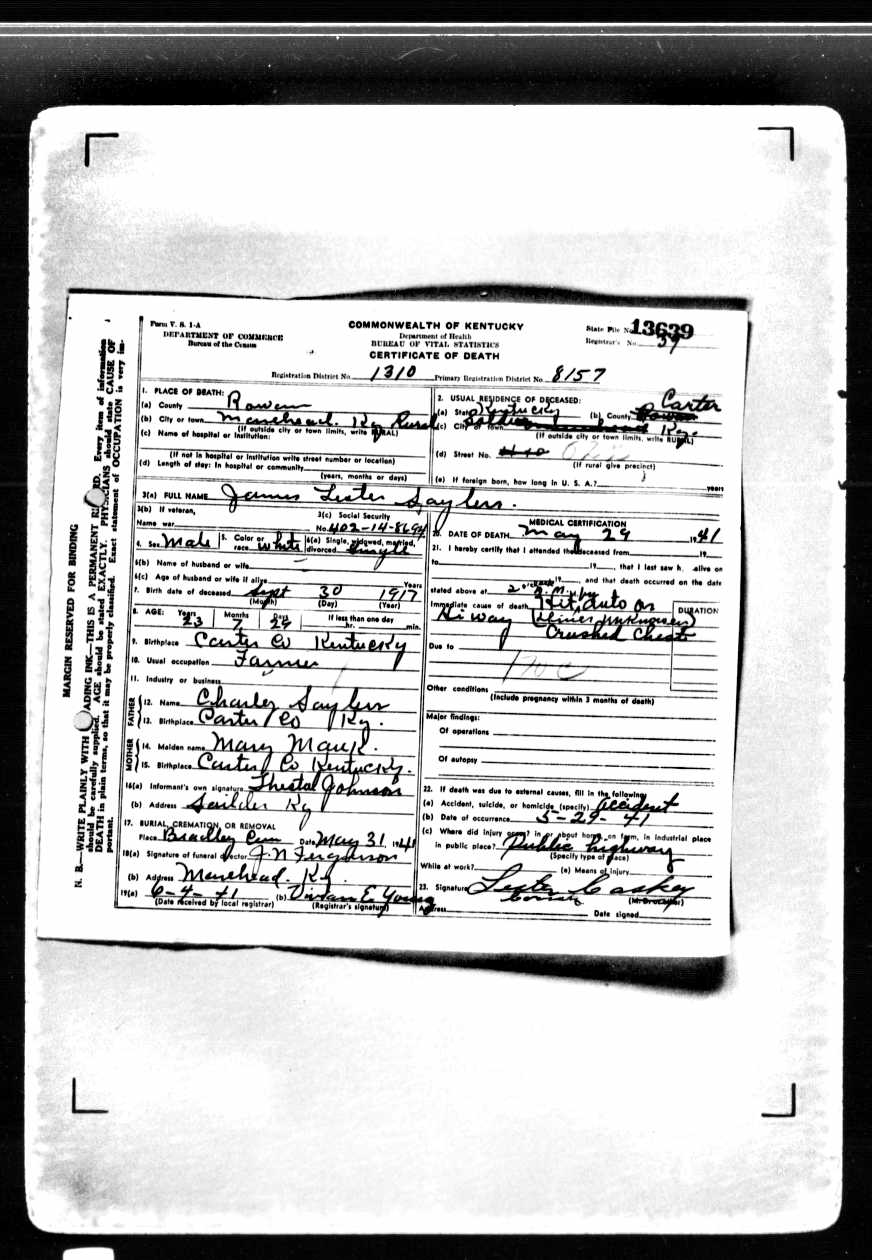 Form V. S. 1-A
DEPARTMENT OF COMMERCE
Bureau of the Census
COMMONWEALTH OF KENTUCKY
Department of Health
BUREAU OF VITAL STATISTICS
CERTIFICATE OF DEATH
State File No. 13639
Registrar's No.
Registration District No. 1310 Primary Registration District No. 8157
MARGIN RESERVED FOR BINDING
N. B.—WRITE PLAINLY WITH ADING INK—THIS IS A PERMANENT RD. Every item of information
should be carefully supplied. AGE should be stated EXACTLY. PHYSICIANS should state CAUSE OF
DEATH in plain terms, so that it may be properly classified. Exact statement of OCCUPATION is very im-
portant.
1. PLACE OF DEATH:
(a) County Rowan
(b) City or town Morehead, Ky Rural
(If outside city or town limits, write RURAL)
(c) Name of hospital or institution:
(If not in hospital or institution write street number or location)
(d) Length of stay: In hospital or community
(years, months or days)
2. USUAL RESIDENCE OF DECEASED:
(a) State Kentucky (b) County Carter
(c) City or town Ky.
(If outside city or town limits, write RURAL)
(d) Street No.
(If rural give precinct)
(e) If foreign born, how long in U. S. A.? years
3(a) FULL NAME James Lester Saylers.
3(b) If veteran,
Name war
3(c) Social Security
No. 402-14-
4. Sex Male 5. Color or race White 6(a) Single, widowed, married, divorced Single
6(b) Name of husband or wife
6(c) Age of husband or wife if alive Years
7. Birth date of deceased Sept 30 1917
(Month) (Day) (Year)
8. AGE: Years 23 Months 7 Days 29 If less than one day hr. min.
9. Birthplace Carter Co Kentucky
10. Usual occupation Farmer
11. Industry or business
FATHER
12. Name Charley Saylers
13. Birthplace Carter Co Ky.
MOTHER
14. Maiden name Mary Mauk.
15. Birthplace Carter Co Kentucky.
16(a) Informant's own signature Thestal Johnson
(b) Address Ky
17. BURIAL, CREMATION, OR REMOVAL
Place Bradley Cem Date May 31, 1941
18(a) Signature of funeral director J. N. Ferguson
(b) Address Morehead. Ky.
19(a) 6-4-41 (b) Vivian E. Young
(Date received by local registrar) (Registrar's signature)
MEDICAL CERTIFICATION
20. DATE OF DEATH May 29 1941
21. I hereby certify that I attended the deceased from 19
to 19, that I last saw h. alive on
19, and that death occurred on the date
stated above at 2 A. M.
Immediate cause of death Hit by Auto on
Hi way (Driver unknown)
Crushed Chest
DURATION
Due to
170C
Other conditions
(Include pregnancy within 3 months of death)
Major findings:
Of operations
Of autopsy
22. If death was due to external causes, fill in the following:
(a) Accident, suicide, or homicide (specify) Accident
(b) Date of occurrence 5-29-41
(c) Where did injury occur? in or about home, on farm, in industrial place
in public place? Public highway
(Specify type of place)
While at work? (e) Means of injury
23. Signature Lester Caskey
Address
Date signed